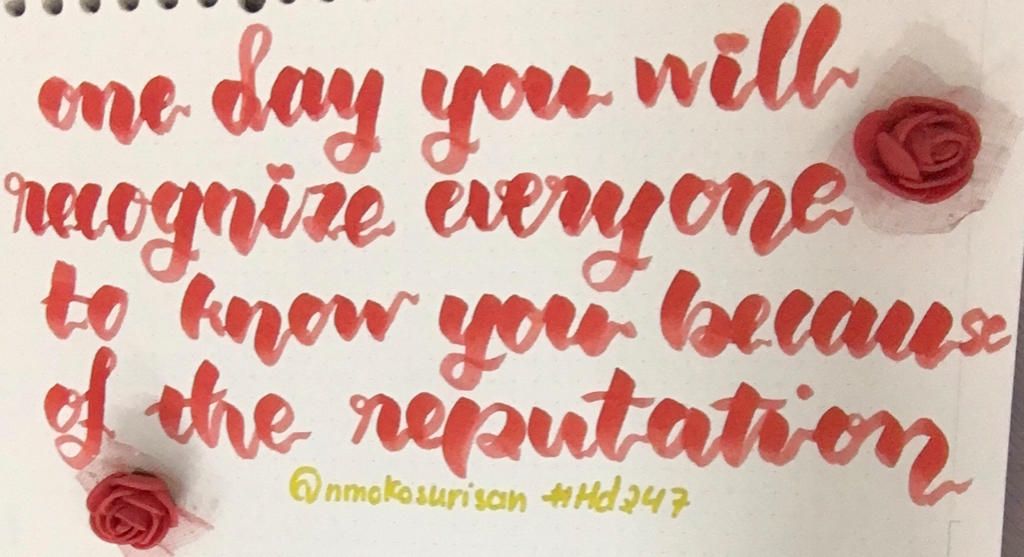 one day you will
recognize everyone
to know you because
of the reputation
@nmokosurisan #Hd247